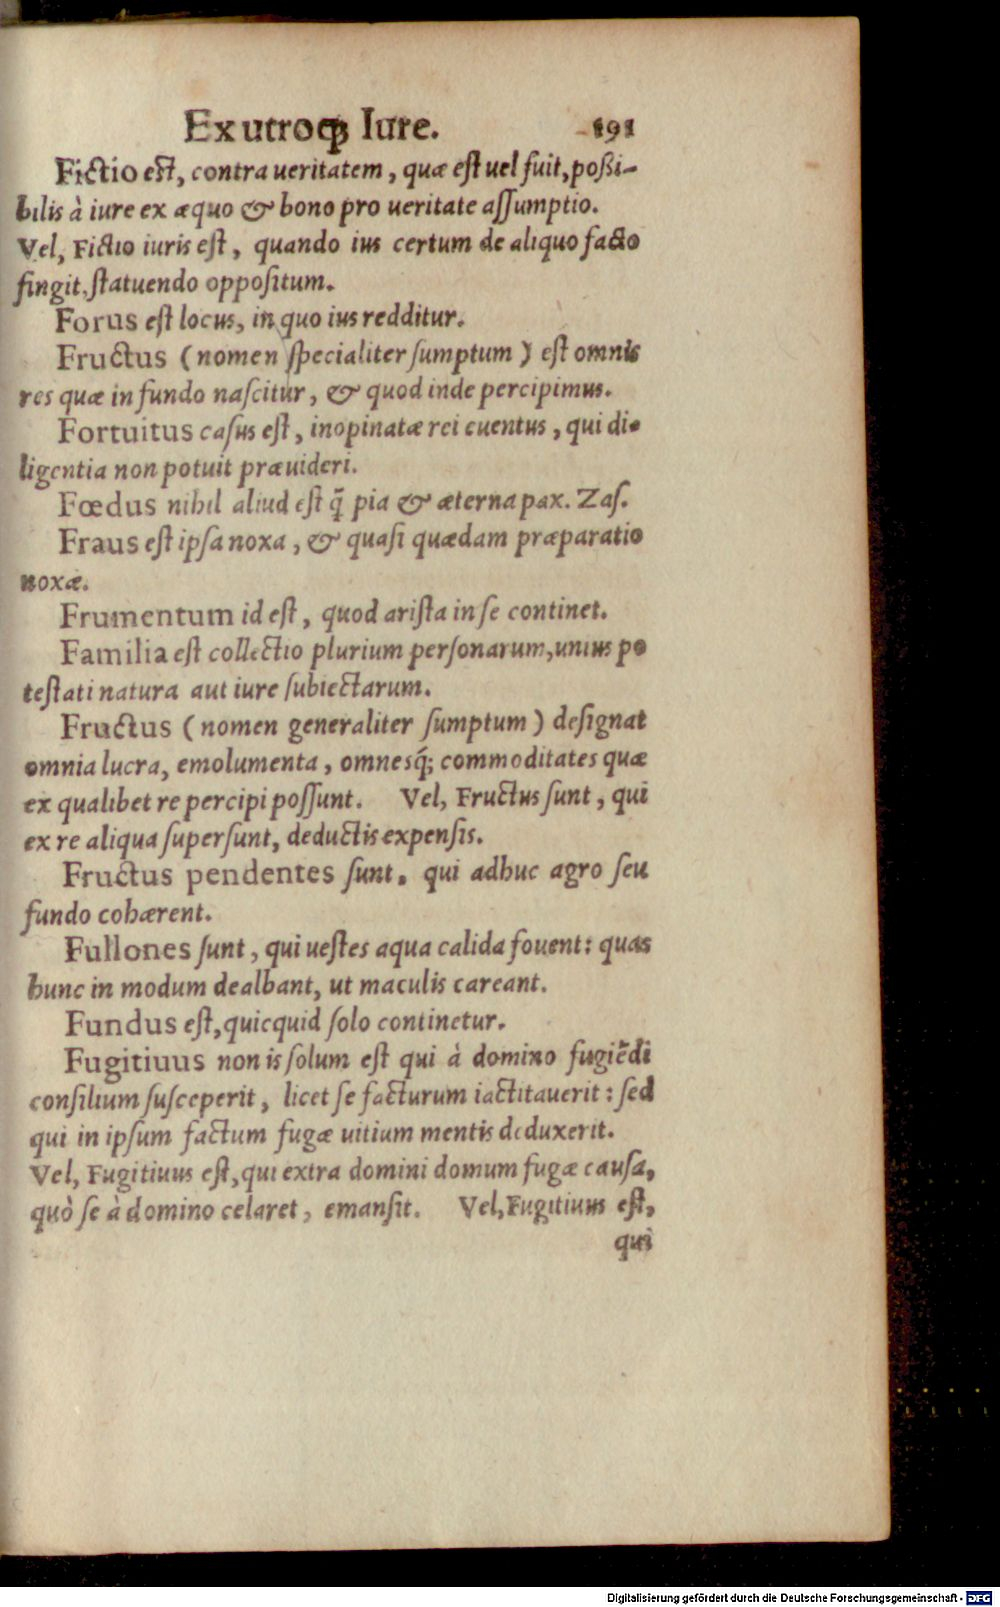 Ex utroq; Iure. 191
Fictio est, contra ueritatem, quæ est uel fuit, poßi-
bilis à iure ex æquo & bono pro ueritate assumptio.
Vel, Fictio iuris est, quando ius certum de aliquo facto
fingit, statuendo oppositum.
Forus est locus, in quo ius redditur.
Fructus (nomen specialiter sumptum) est omnis
res quæ in fundo nascitur, & quod inde percipimus.
Fortuitus casus est, inopinatæ rei euentus, qui di-
ligentia non potuit præuideri.
Fœdus nihil aliud est q̃ pia & æterna pax. Zas.
Fraus est ipsa noxa, & quasi quædam præparatio
noxæ.
Frumentum id est, quod arista in se continet.
Familia est collectio plurium personarum, unius po
testati natura aut iure subiectarum.
Fructus (nomen generaliter sumptum) designat
omnia lucra, emolumenta, omnesq́; commoditates quæ
ex qualibet re percipi possunt. Vel, Fructus sunt, qui
ex re aliqua supersunt, deductis expensis.
Fructus pendentes sunt, qui adhuc agro seu
fundo cohærent.
Fullones sunt, qui uestes aqua calida fouent: quas
hunc in modum dealbant, ut maculis careant.
Fundus est, quicquid solo continetur.
Fugitiuus non is solum est qui à domino fugiẽdi
consilium susceperit, licet se facturum iactitauerit: sed
qui in ipsum factum fugæ uitium mentis deduxerit.
Vel, Fugitiuus est, qui extra domini domum fugæ causa,
quò se à domino celaret, emansit. Vel, Fugitiuus est,
qui
Digitalisierung gefördert durch die Deutsche Forschungsgemeinschaft - DFG